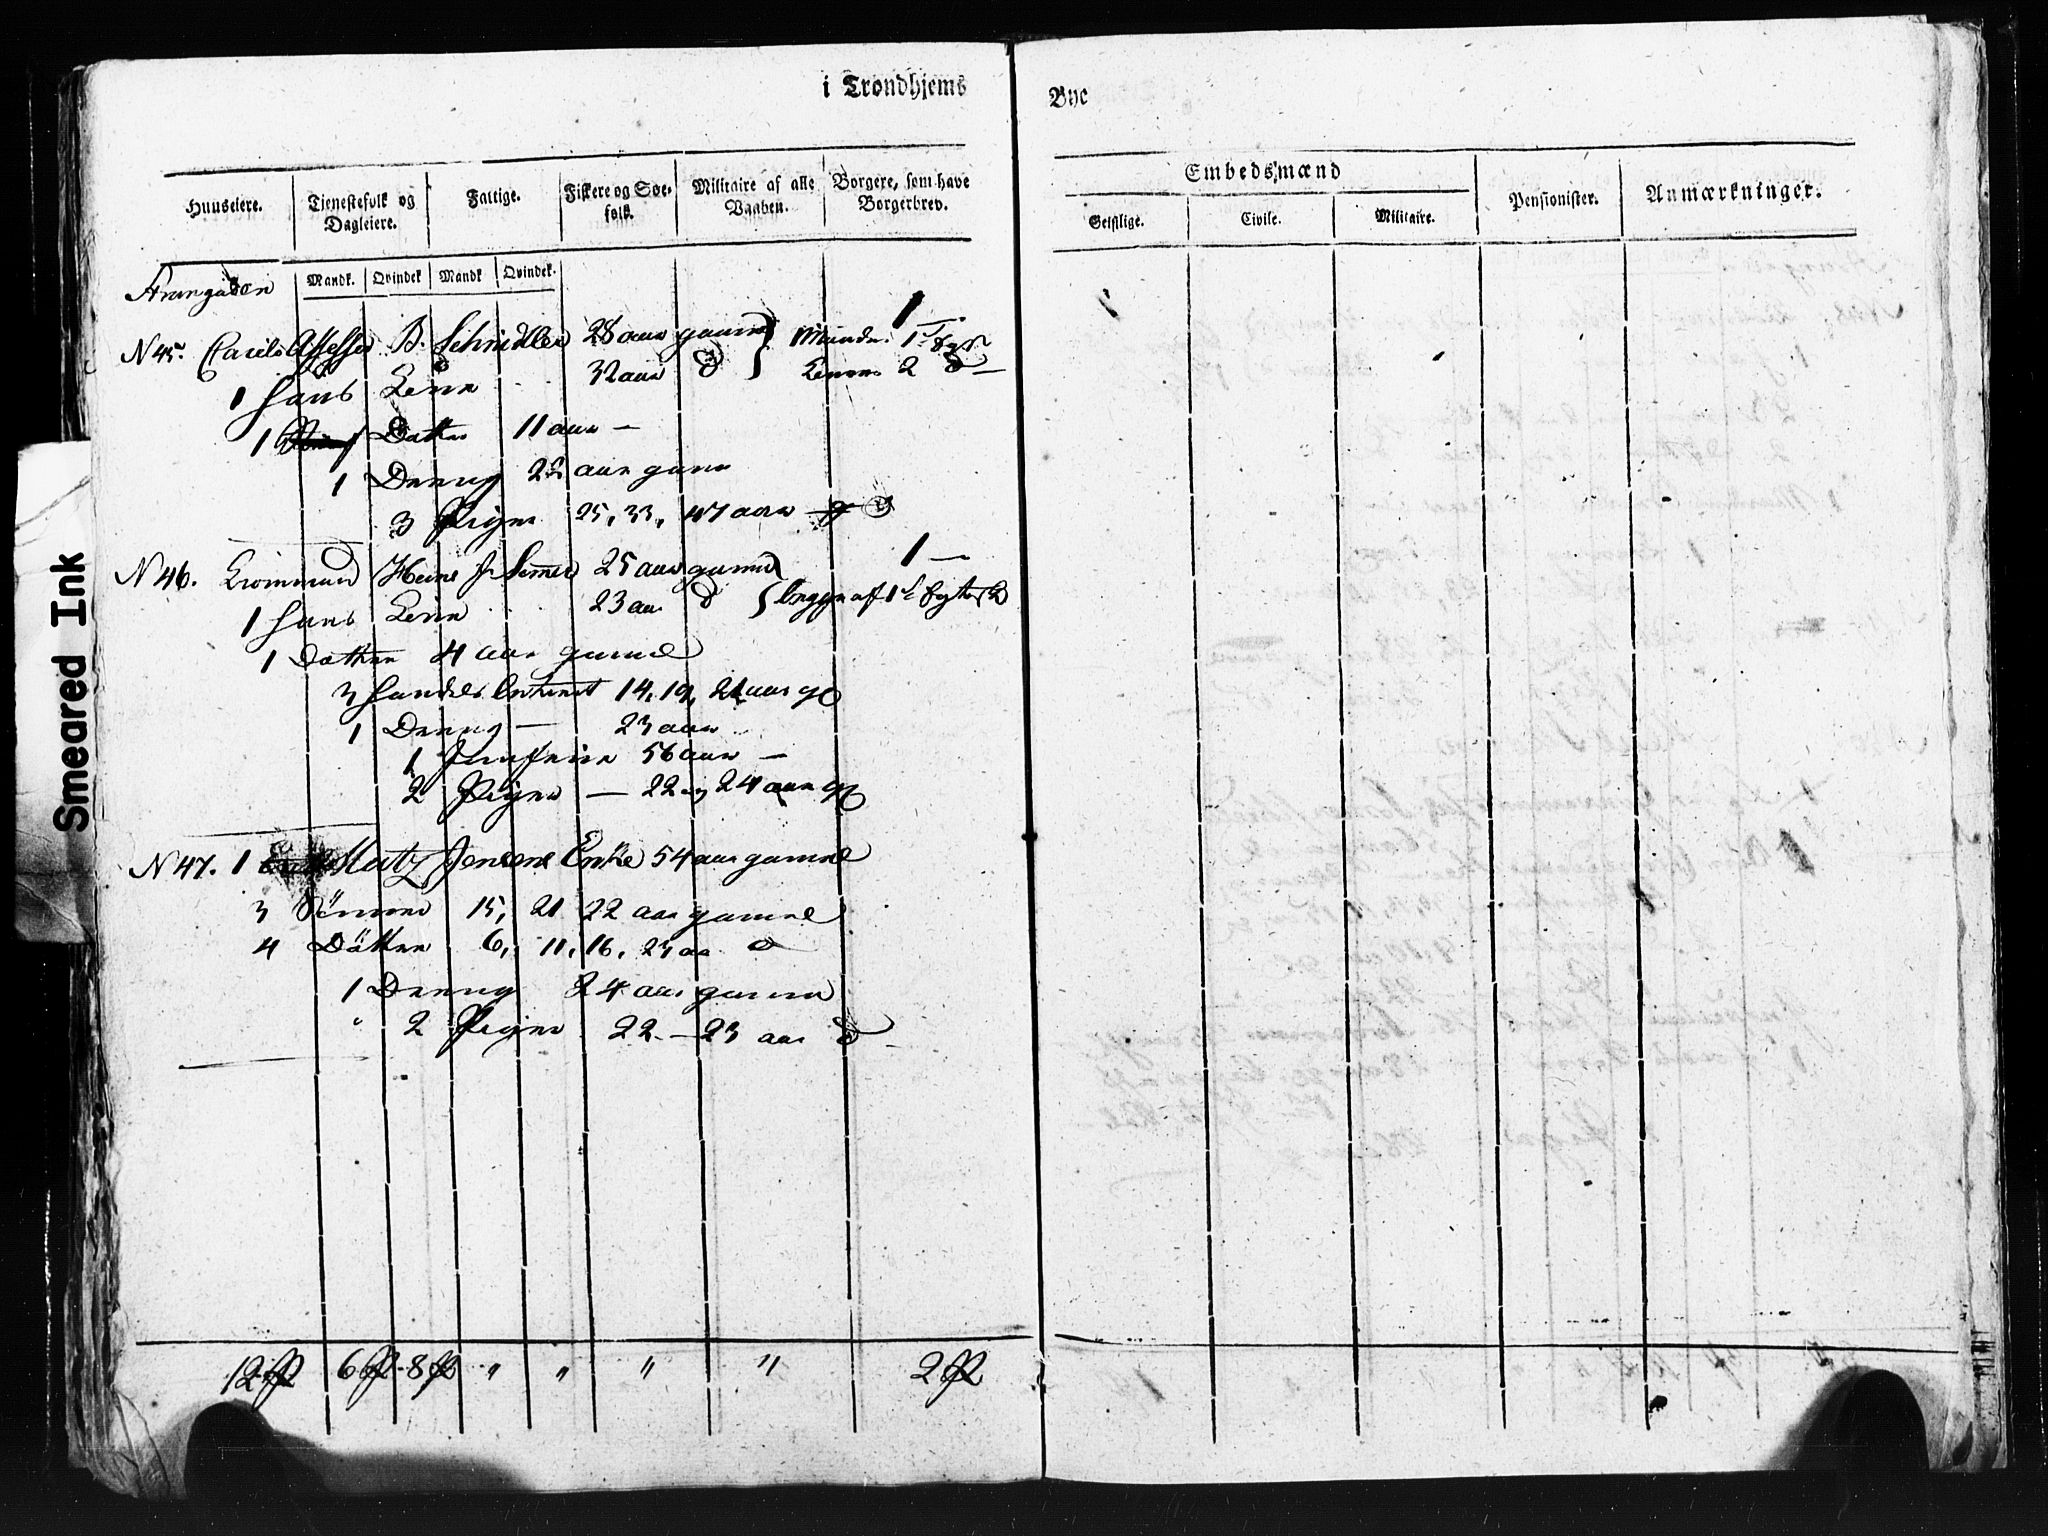 i Trondhjems Bye
Huuseiere. Tienestefolk og Dagleiere. Fattige. Fiskere og Søefolk. Militaire af alle Vaaben. Borgere, som have Borgerbrev.
Embedsmænd
Geistlige. Civile. Militaire. Pensionister. Anmærkninger.
Mandk. Qvindek Mandk Qvindek.
1
N 45. B. Schnidler 28 aar gamel
1 hans Kone 32 aar d 2 d
1 Datter 11 aar
1 Dreng 28 aar gamel
3 Piger 25, 33, 47 aar
1
N 46. 25 aar gamel
1 hans Kone 23 aar d
1 Datter 4 aar gamel
3 Handels 14, 19, 21 aar gl
1 Dreng 23 aar
1 Jomfrue 56 aar
2 Piger 22 og 24 aar gl
N 47. 1 Matz Jensens Enke 54 aar gamel
3 Sönner 15, 21 22 aar gamel
4 Döttre 6, 11, 16, 23 aar d
1 Dreng 24 aar gamel
2 Piger 22 - 23 aar d
12 6 8 " " " " 2
Smeared Ink